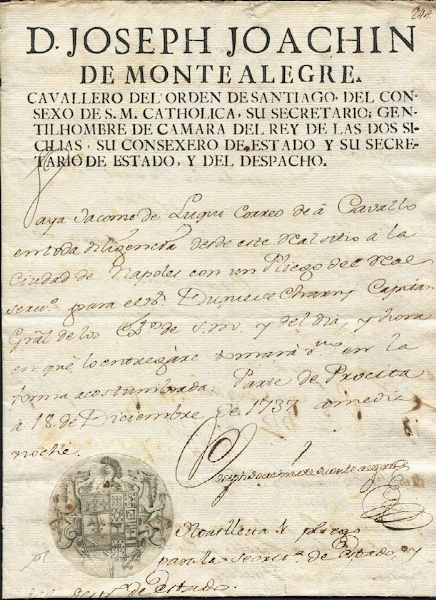 244.
D. JOSEPH JOACHIN
DE MONTEALEGRE.
CAVALLERO DEL ORDEN DE SANTIAGO, DEL CON-
SEXO DE S. M. CATHOLICA, SU SECRETARIO; GEN-
TILHOMBRE DE CAMARA DEL REY DE LAS DOS SI-
CILIAS, SU CONSEXERO DE ESTADO Y SU SECRE-
TARIO DE ESTADO, Y DEL DESPACHO.
Vaya Jacome de Luqui Correo de à Cavallo
en toda diligencia desde este Real sitio a la
Ciudad de Napoles con un Pliego del Real
serv.º para el Duque de Charny Capitan
Gral de los de S.M. y del dia, y hora
en què lo entregàre tomarà en la
forma acostumbrada. Parte de Procita
a 18 de Diciembre de 1737 a media
noche.
Joseph Joachin de Montealegre
pliego
para la secret.ª de Estado, y
de Estado.